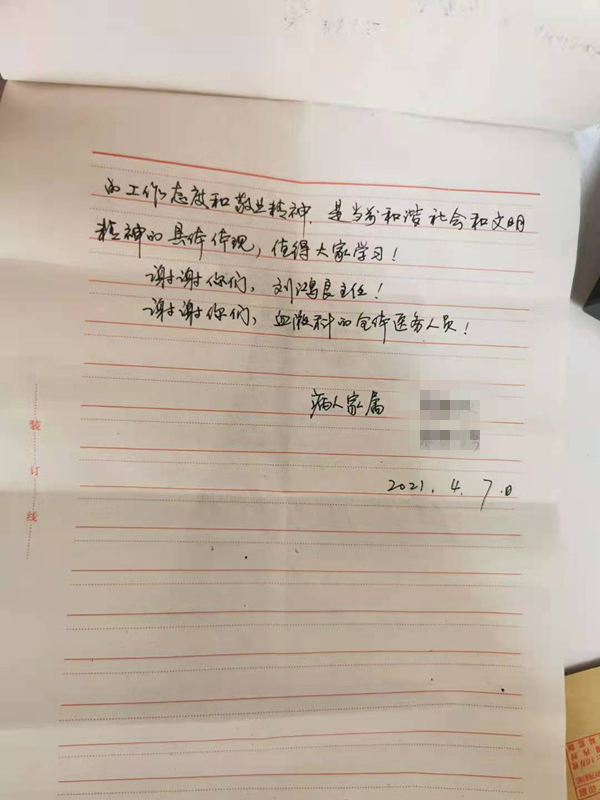 的工作态度和敬业精神.是当前和谐社会和文明
精神的具体体现，值得大家学习！
谢谢你们，刘鸿良主任！
谢谢你们，血液科的全体医务人员！
病人家属
2021.4.7.日
装
订
线